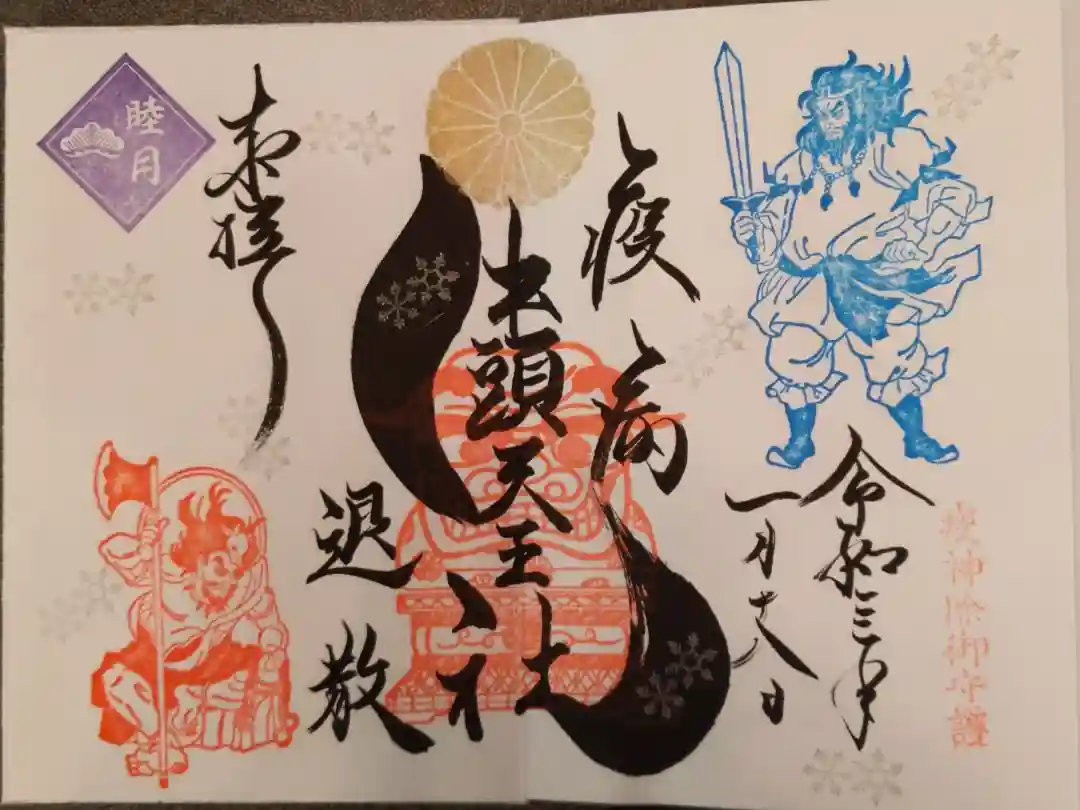 疫神除御守護
令和三年
一月十八日
疫病
牛頭天王社
退散
奉拝
睦月